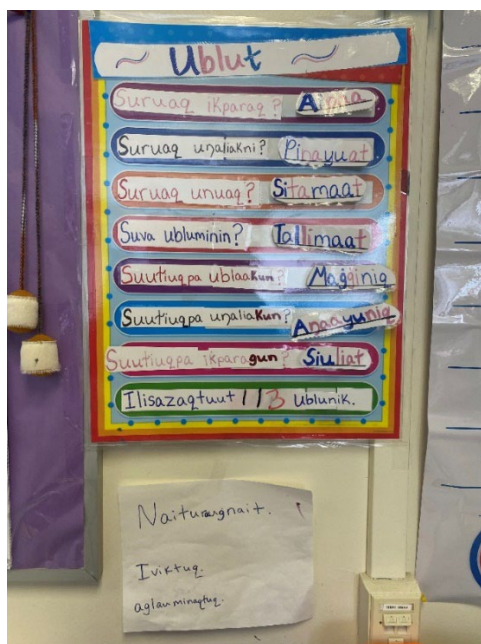 Ublut
Suruaq ikparaq? Aippa
Suruaq unaliakni? Pinayuat
Suruaq unuaq? Sitamaat
Suva ubluminin? Tallimaat
Suutiuqpa ublaakun? Maġġiniq
Suutiuqpa unaliakun? Anaayuniq
Suutiuqpa ikparagun? Siuliat
Ilisazaqtuut 113 ublunik.
Iviktuq.